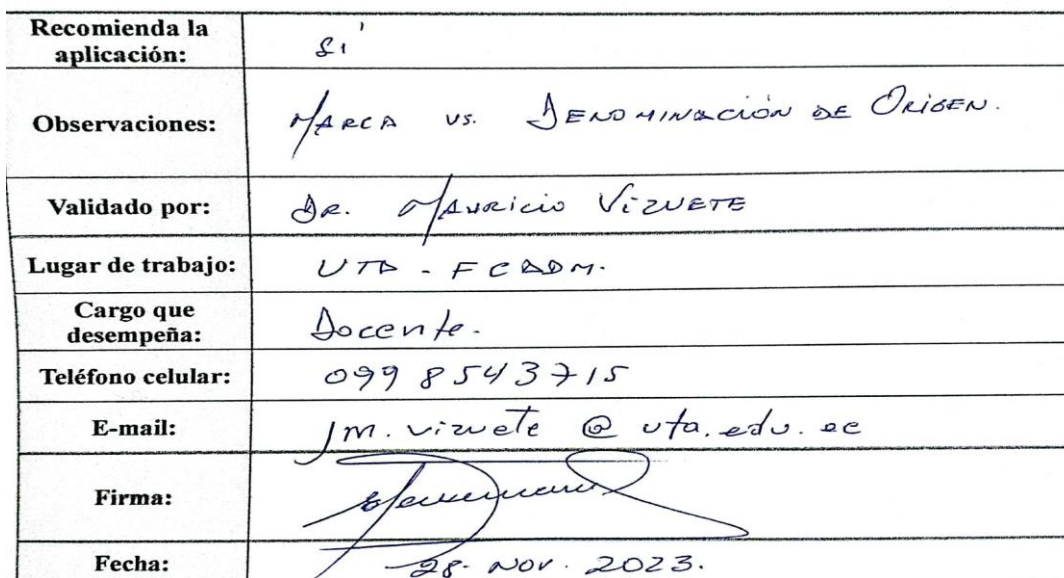 Recomienda la
aplicación:
Sí
Observaciones:
MARCA VS. DENOMINACIÓN DE ORIGEN.
Validado por:
DR. MAURICIO VIZUETE
Lugar de trabajo:
UTA - FCADM.
Cargo que
desempeña:
Docente.
Teléfono celular:
0998543715
E-mail:
jm.vizuete@uta.edu.ec
Firma:
Fecha:
28. NOV. 2023.